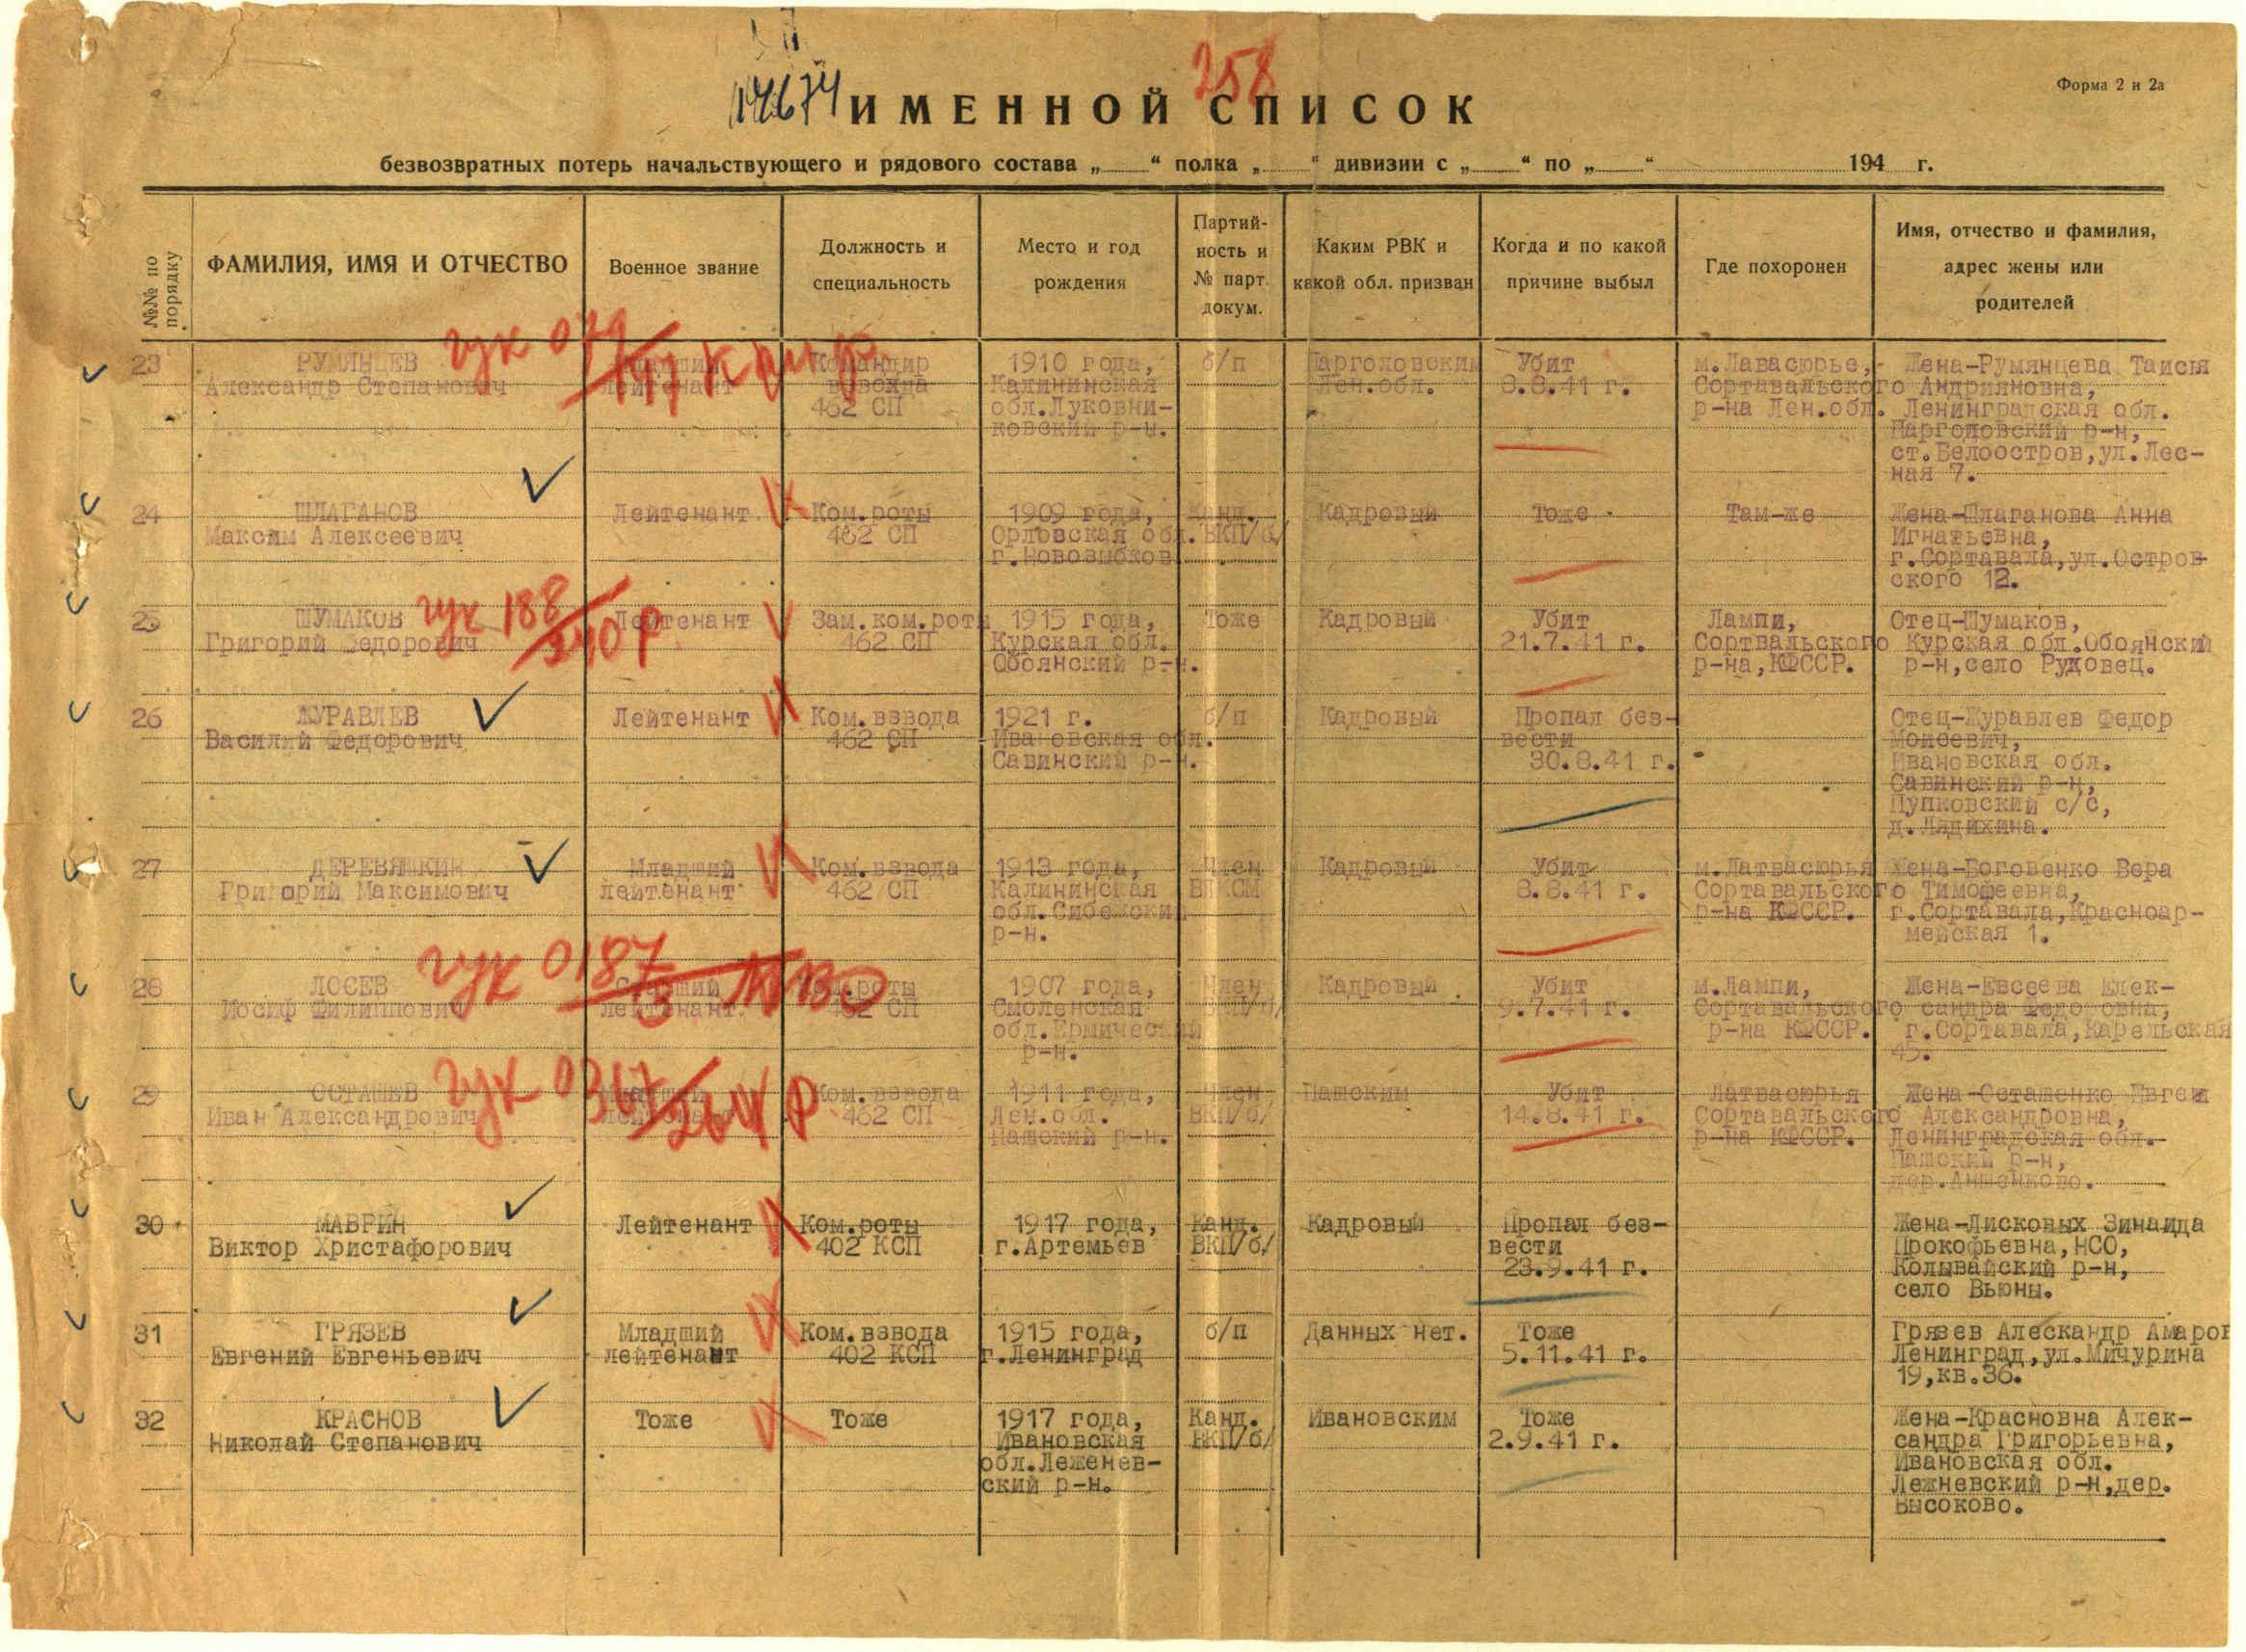 14674
258
ИМЕННОЙ СПИСОК
Форма 2 и 2а
безвозвратных потерь начальствующего и рядового состава „ “ полка „ “ дивизии с „ “ по „ “ 194 г.
№№ по порядку
ФАМИЛИЯ, ИМЯ И ОТЧЕСТВО
Военное звание
Должность и
специальность
Место и год
рождения
Партий-
ность и
№ парт.
докум.
Каким РВК и
какой обл. призван
Когда и по какой
причине выбыл
Где похоронен
Имя, отчество и фамилия,
адрес жены или
родителей
23
РУМЯНЦЕВ
Александр Степанович
гук
Младший
лейтенант
Командир
взвода
462 СП
1910 года,
Калининская
обл.Луковни-
ковский р-н.
б/п
Парголовским
Лен.обл.
Убит
8.8.41 г.
м.Лавасюрье,
Сортавальского
р-на Лен.обл.
Жена-Румянцева Таисья
Андрияновна,
Ленинградская обл.
Парголовский р-н,
ст.Белоостров,ул.Лес-
ная 7.
24
ШЛАГАНОВ
Максим Алексеевич
Лейтенант
Ком.роты
462 СП
1909 года,
Орловская обл.
г.Новозыбков
Канд.
ВКП/б/
Кадровый
Тоже
Там-же
Жена-Шлаганова Анна
Игнатьевна,
г.Сортавала,ул.Остров-
ского 12.
25
ШУМАКОВ
Григорий Федорович
гук 188
240 р
Лейтенант
Зам.ком.роты
462 СП
1915 года,
Курская обл.
Обоянский р-н.
Тоже
Кадровый
Убит
21.7.41 г.
Лампи,
Сортвальского
р-на,КФССР.
Отец-Шумаков,
Курская обл.Обоянский
р-н,село Рудовец.
26
ЖУРАВЛЕВ
Василий Федорович
Лейтенант
Ком.взвода
462 СП
1921 г.
Ивановская обл.
Савинский р-н.
б/п
Кадровый
Пропал без-
вести
30.8.41 г.
Отец-Журавлев Федор
Моисеевич,
Ивановская обл.
Савинский р-н,
Пупковский с/с,
д.Лядихина.
27
ДЕРЕВЯШКИН
Григорий Максимович
Младший
лейтенант
Ком.взвода
462 СП
1913 года,
Калининская
обл.
р-н.
Член
ВЛКСМ
Кадровый
Убит
8.8.41 г.
м.Латвасюрья
Сортавальского
р-на КФССР.
Жена-Боговенко Вера
Тимофеевна,
г.Сортавала,Красноар-
мейская 1.
28
ЛОСЕВ
Иосиф Филиппович
гук 0187
Старший
лейтенант
Ком.роты
462 СП
1907 года,
Смоленская
обл.Ермический
р-н.
Член
ВКП/б/
Кадровый
Убит
9.7.41 г.
м.Лампи,
Сортавальского
р-на КФССР.
Жена-Евсеева Алек-
сандра Федоровна,
г.Сортавала,Карельская
45.
29
ОСТАШЕВ
Иван Александрович
гук 0367
264 р
Младший
лейтенант
Ком.взвода
462 СП
1911 года,
Лен.обл.
Пашский р-н.
Член
ВКП/б/
Пашским
Убит
14.8.41 г.
Латвасюрья
Сортавальского
р-на КФССР.
Жена-Осташенко Евген
Александровна,
Ленинградская обл.
Пашский р-н,
дер.
30
МАВРИН
Виктор Христафорович
Лейтенант
Ком.роты
402 КСП
1917 года,
г.Артемьев
Канд.
ВКП/б/
Кадровый
Пропал без-
вести
23.9.41 г.
Жена-Лисковых Зинаида
Прокофьевна,НСО,
Колывайский р-н,
село Вьюны.
31
ГРЯЗЕВ
Евгений Евгеньевич
Младший
лейтенант
Ком.взвода
402 КСП
1915 года,
г.Ленинград
б/п
Данных нет.
Тоже
5.11.41 г.
Грязев Алескандр Амаров
Ленинград,ул.Мичурина
19,кв.36.
32
КРАСНОВ
Николай Степанович
Тоже
Тоже
1917 года,
Ивановская
обл.Леженев-
ский р-н.
Канд.
ВКП/б/
Ивановским
Тоже
2.9.41 г.
Жена-Красновна Алек-
сандра Григорьевна,
Ивановская обл.
Лежневский р-н,дер.
Высоково.